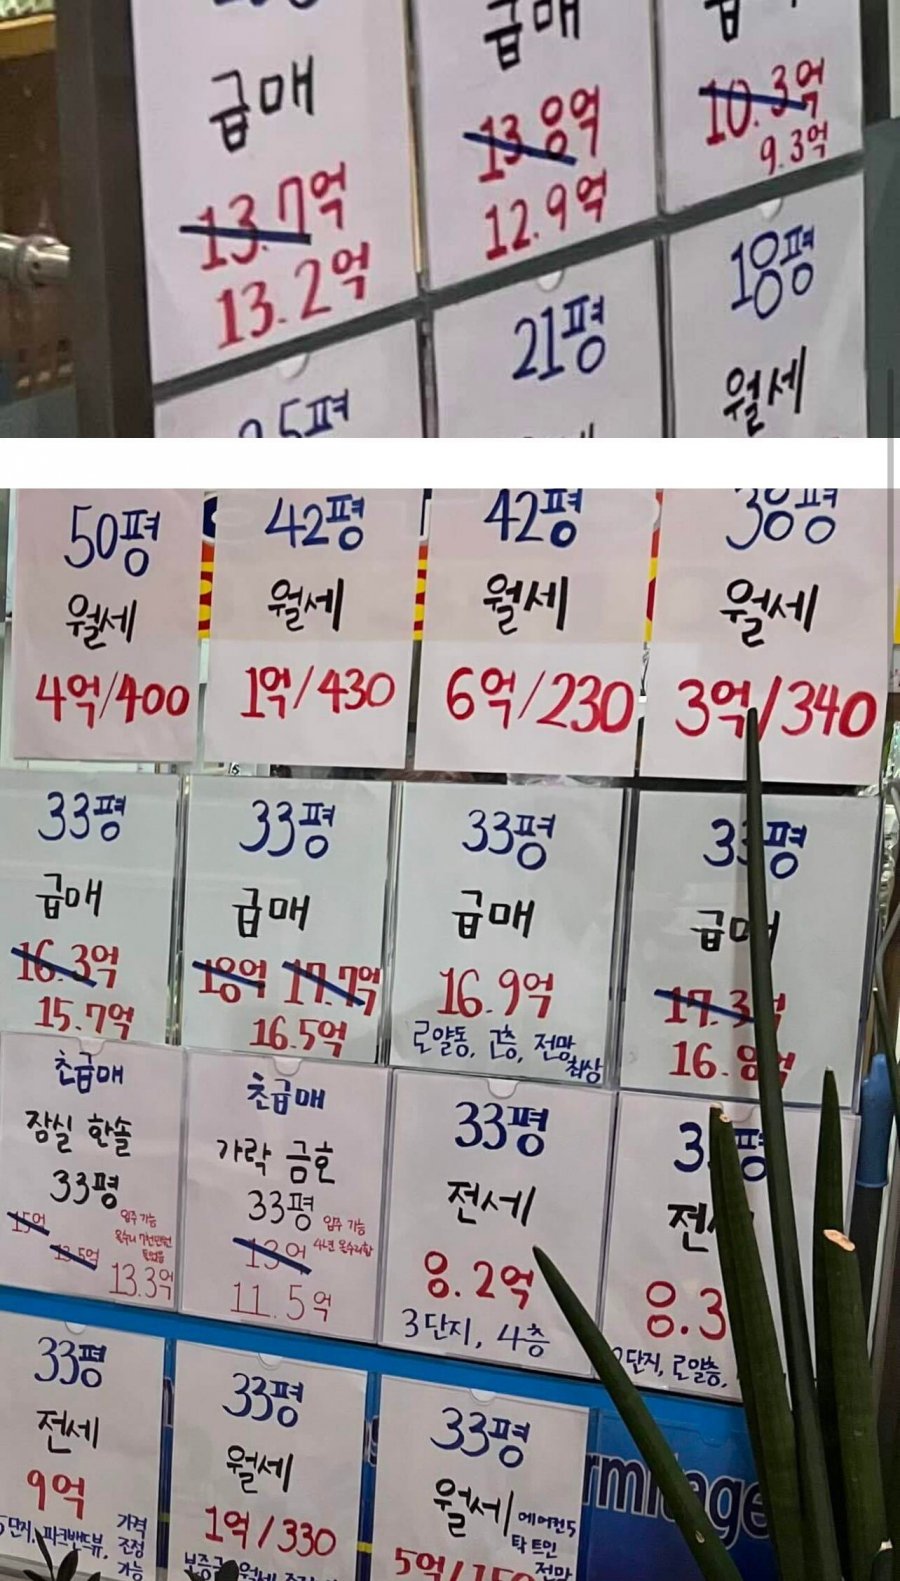 급매
13.7억
13.2억
급매
13.8억
12.9억
10.3억
9.3억
21평
18평
월세
50평
월세
4억/400
42평
월세
1억/430
42평
월세
6억/230
38평
월세
3억/340
33평
급매
16.3억
15.7억
33평
급매
18억 17.7억
16.5억
33평
급매
16.9억
로얄동, 고층, 전망
최상
33평
급매
17.3억
16.8억
초급매
잠실 한솔
33평
15억
입주 가능
13.5억
13.3억
초급매
가락 금호
33평
입주 가능
13억
11.5억
33평
전세
8.2억
3단지, 4층
전세
8.3
단지, 로얄층,
33평
전세
9억
5단지, 파크밴드뷰, 가격
조정
가능
33평
월세
1억/330
33평
월세
에어컨5
탁 트인
전망
5억/150